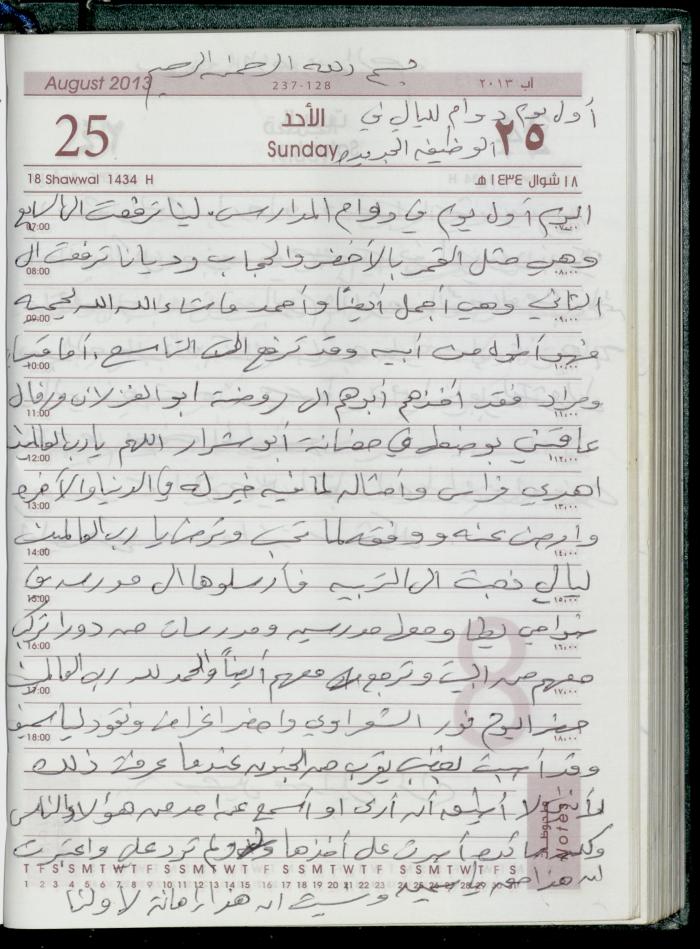 بسم الله الرحمن الرحيم
August 2013 237-128 آب ٢٠١٣
أول يوم دوام لليالي في
25 الأحد ٢٥
Sunday الوظيفة الجديدة
18 Shawwal 1434 H ١٨ شوال ١٤٣٤ هـ
اليوم أول يوم في دوام المدارس. لينا ترفعت الى السابع
07:00 ٠٧:٠٠
وهي مثل القمر بالأخضر والحجاب وديانا ترفعت ال
08:00 ٠٨:٠٠
الثاني وهي أجمل أيضاً وأحمد ماشاء الله الله يحميه
09:00 ٠٩:٠٠
فهو أطول من أبيه وقد ترفع الى التاسع، أما
10:00 ١٠:٠٠
ومراد فقد أخذهم أبوهم ال روضة ابو الغزلان وقال
11:00 ١١:٠٠
في حضانة أبو شرار اللهم يارب العالمين
12:00 ١٢:٠٠
اهدي فراس وأمثاله لما فيه خير له في الدنيا والآخرة
13:00 ١٣:٠٠
وارض عنه ووفقه لما تحب وترضى يا رب العالمين
14:00 ١٤:٠٠
ليالي ذهبت ال التربيه فأرسلوها ال مدرسه في
15:00 ١٥:٠٠
ضواحي يطا ومعها مدرسين ومدرسات من دورا تركب
16:00 ١٦:٠٠
معهم من البيت وترجع معهم أيضاً والحمد لله رب العالمين
17:00 ١٧:٠٠
حضر اليوم نور الشعراوي واحضر اغراض ونقود
18:00 ١٨:٠٠
وقد أصبت بغضب يقرب من الجنون عندما عرفت ذلك
لأنني لا أطيق أن أرى او أسمع عن احد من هؤلاء الناس
أصرت على أخذها ولم ترد علي واعتبرت
ان هذا
ونسيت ان هذا إهانة لأولنا
ملاحظات Notes
8
T F S S M T W T F S S M T W T F S S M T W T F S S M T W T F S
1 2 3 4 5 6 7 8 9 10 11 12 13 14 15 16 17 18 19 20 21 22 23 24 25 26 27 28 29 30 31